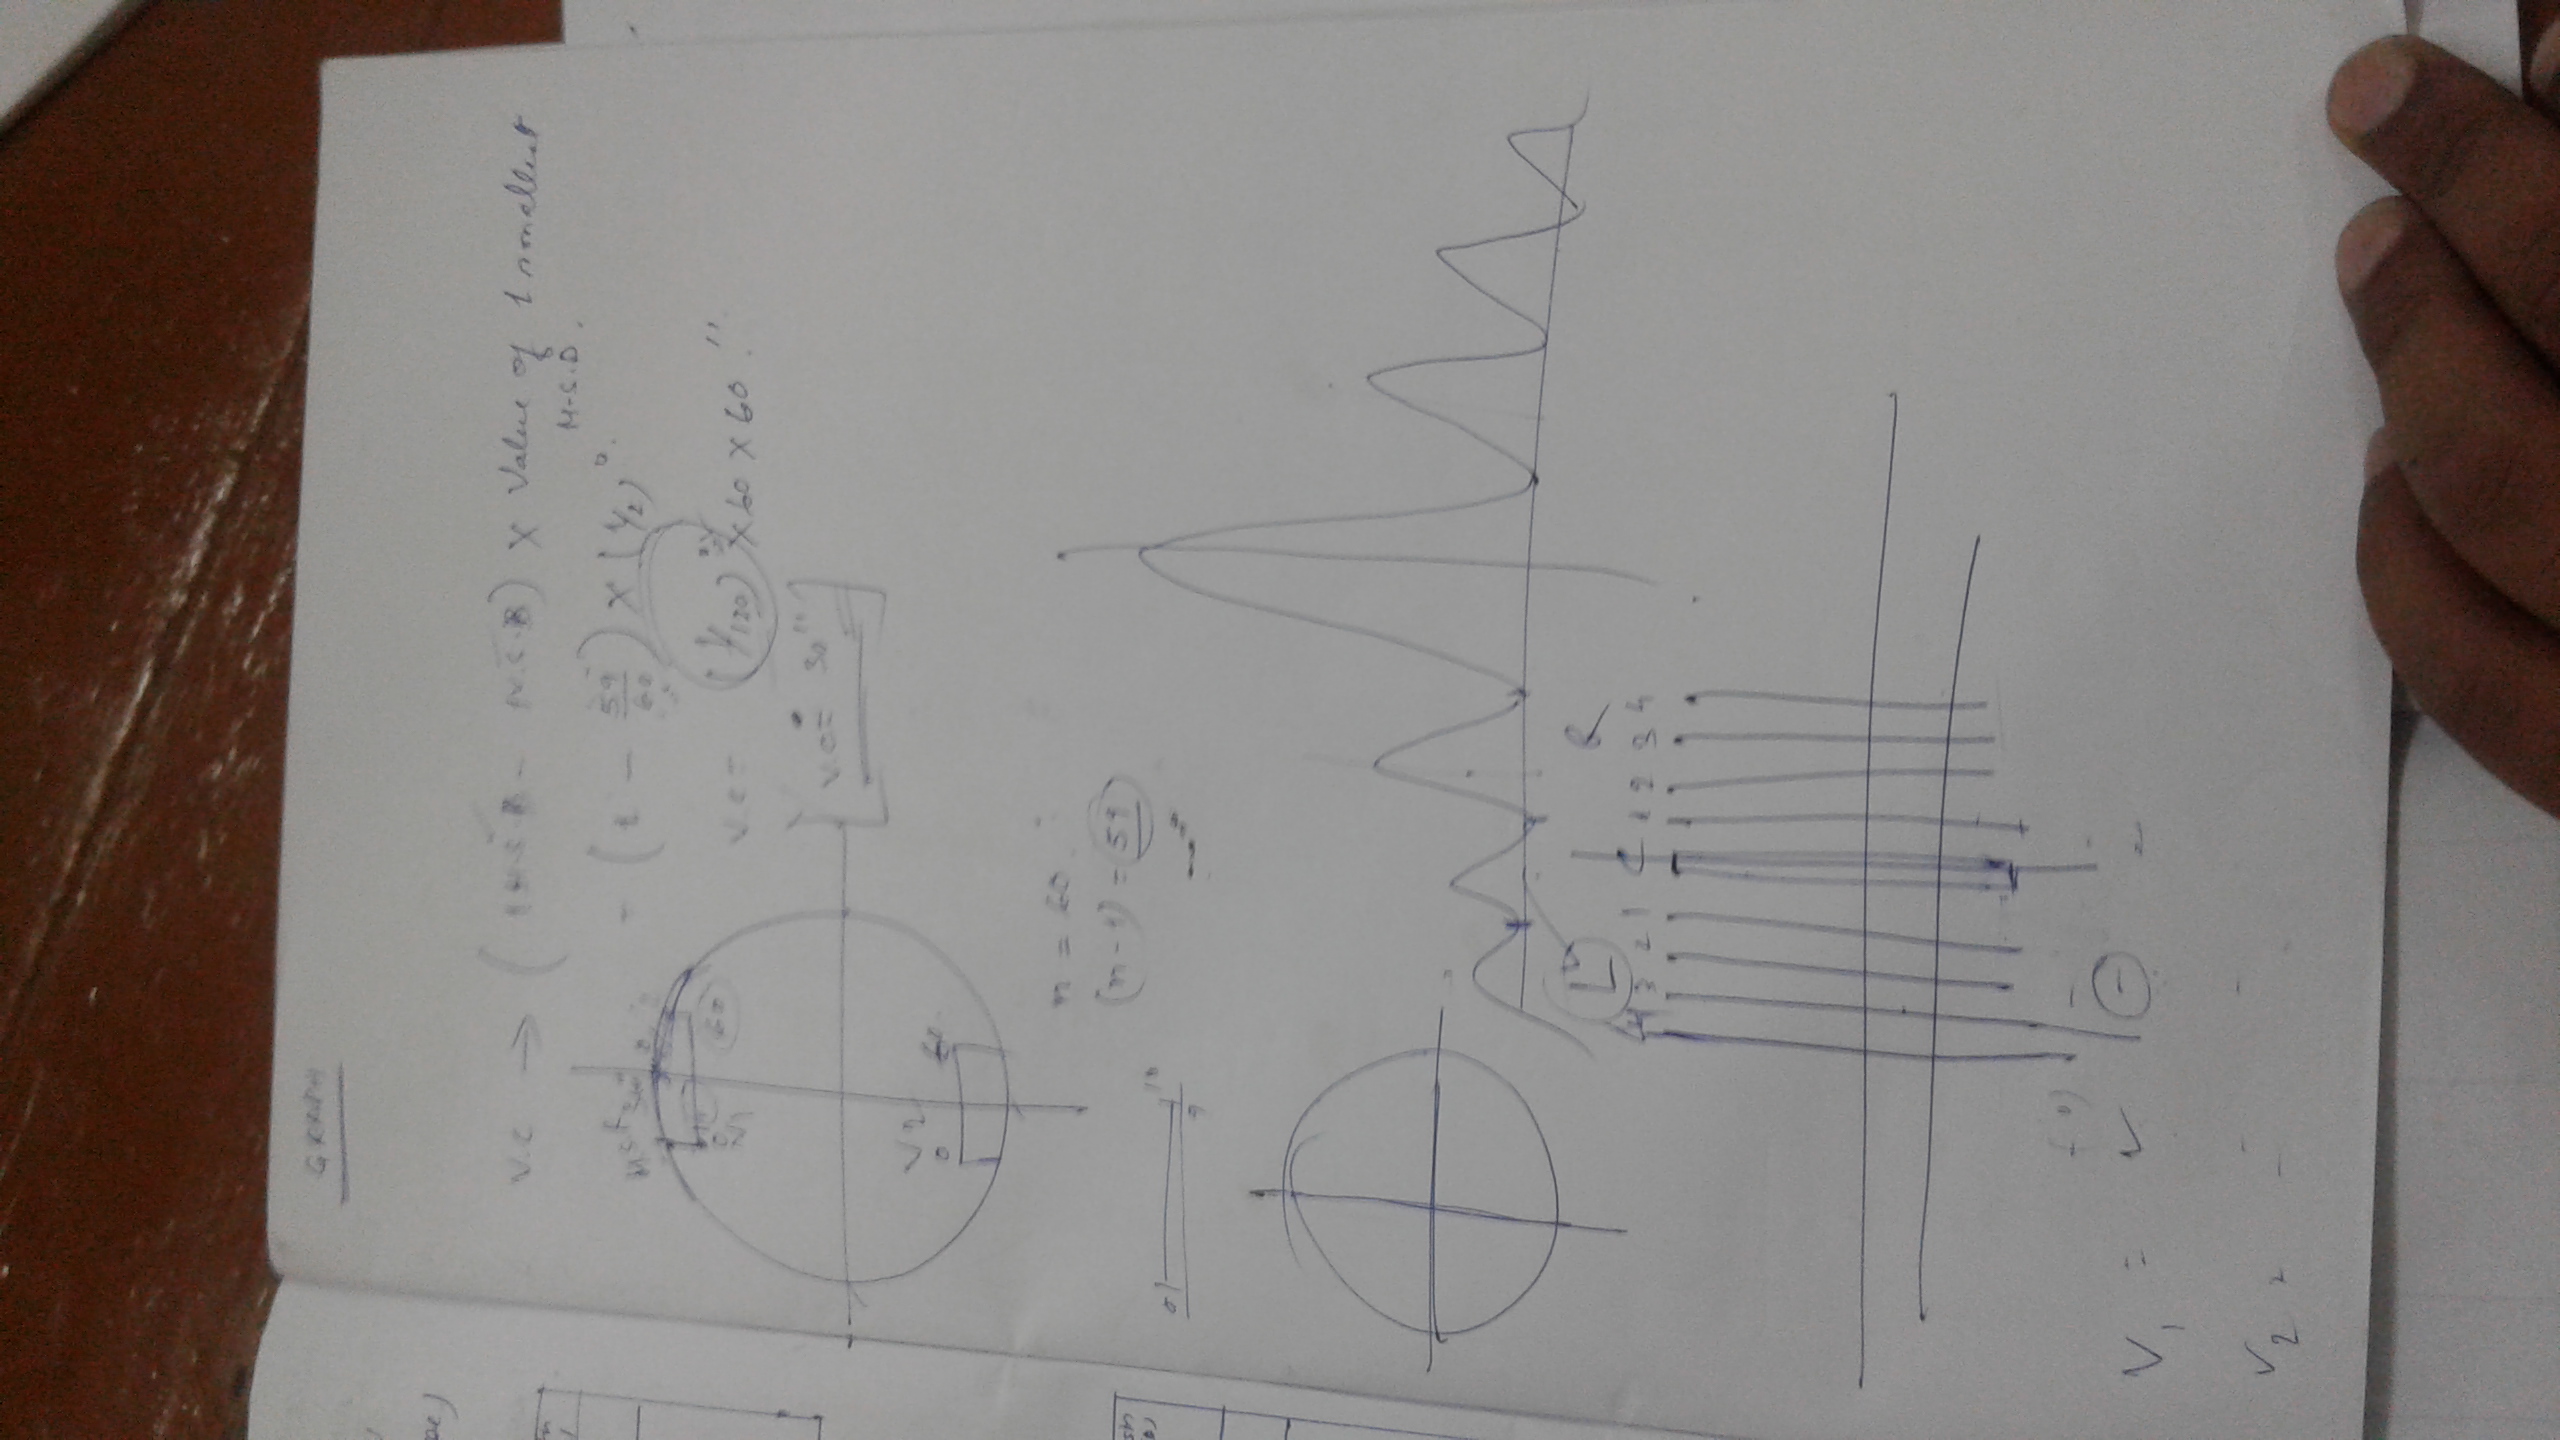 GRAPH
V.C → (1 M.S.D - 1 V.S.D) × Value of 1 smallest
M.S.D.
= (1 - 59/60) × (1/2)°
60
V.C = (1/120)° × 60 × 60 "
V.C = 30"
V2
0
n = 60
(n-1) = 59
0 10
9
L R
4 3 2 1 C 1 2 3 4
V1 = ✓ -
V2 = - -